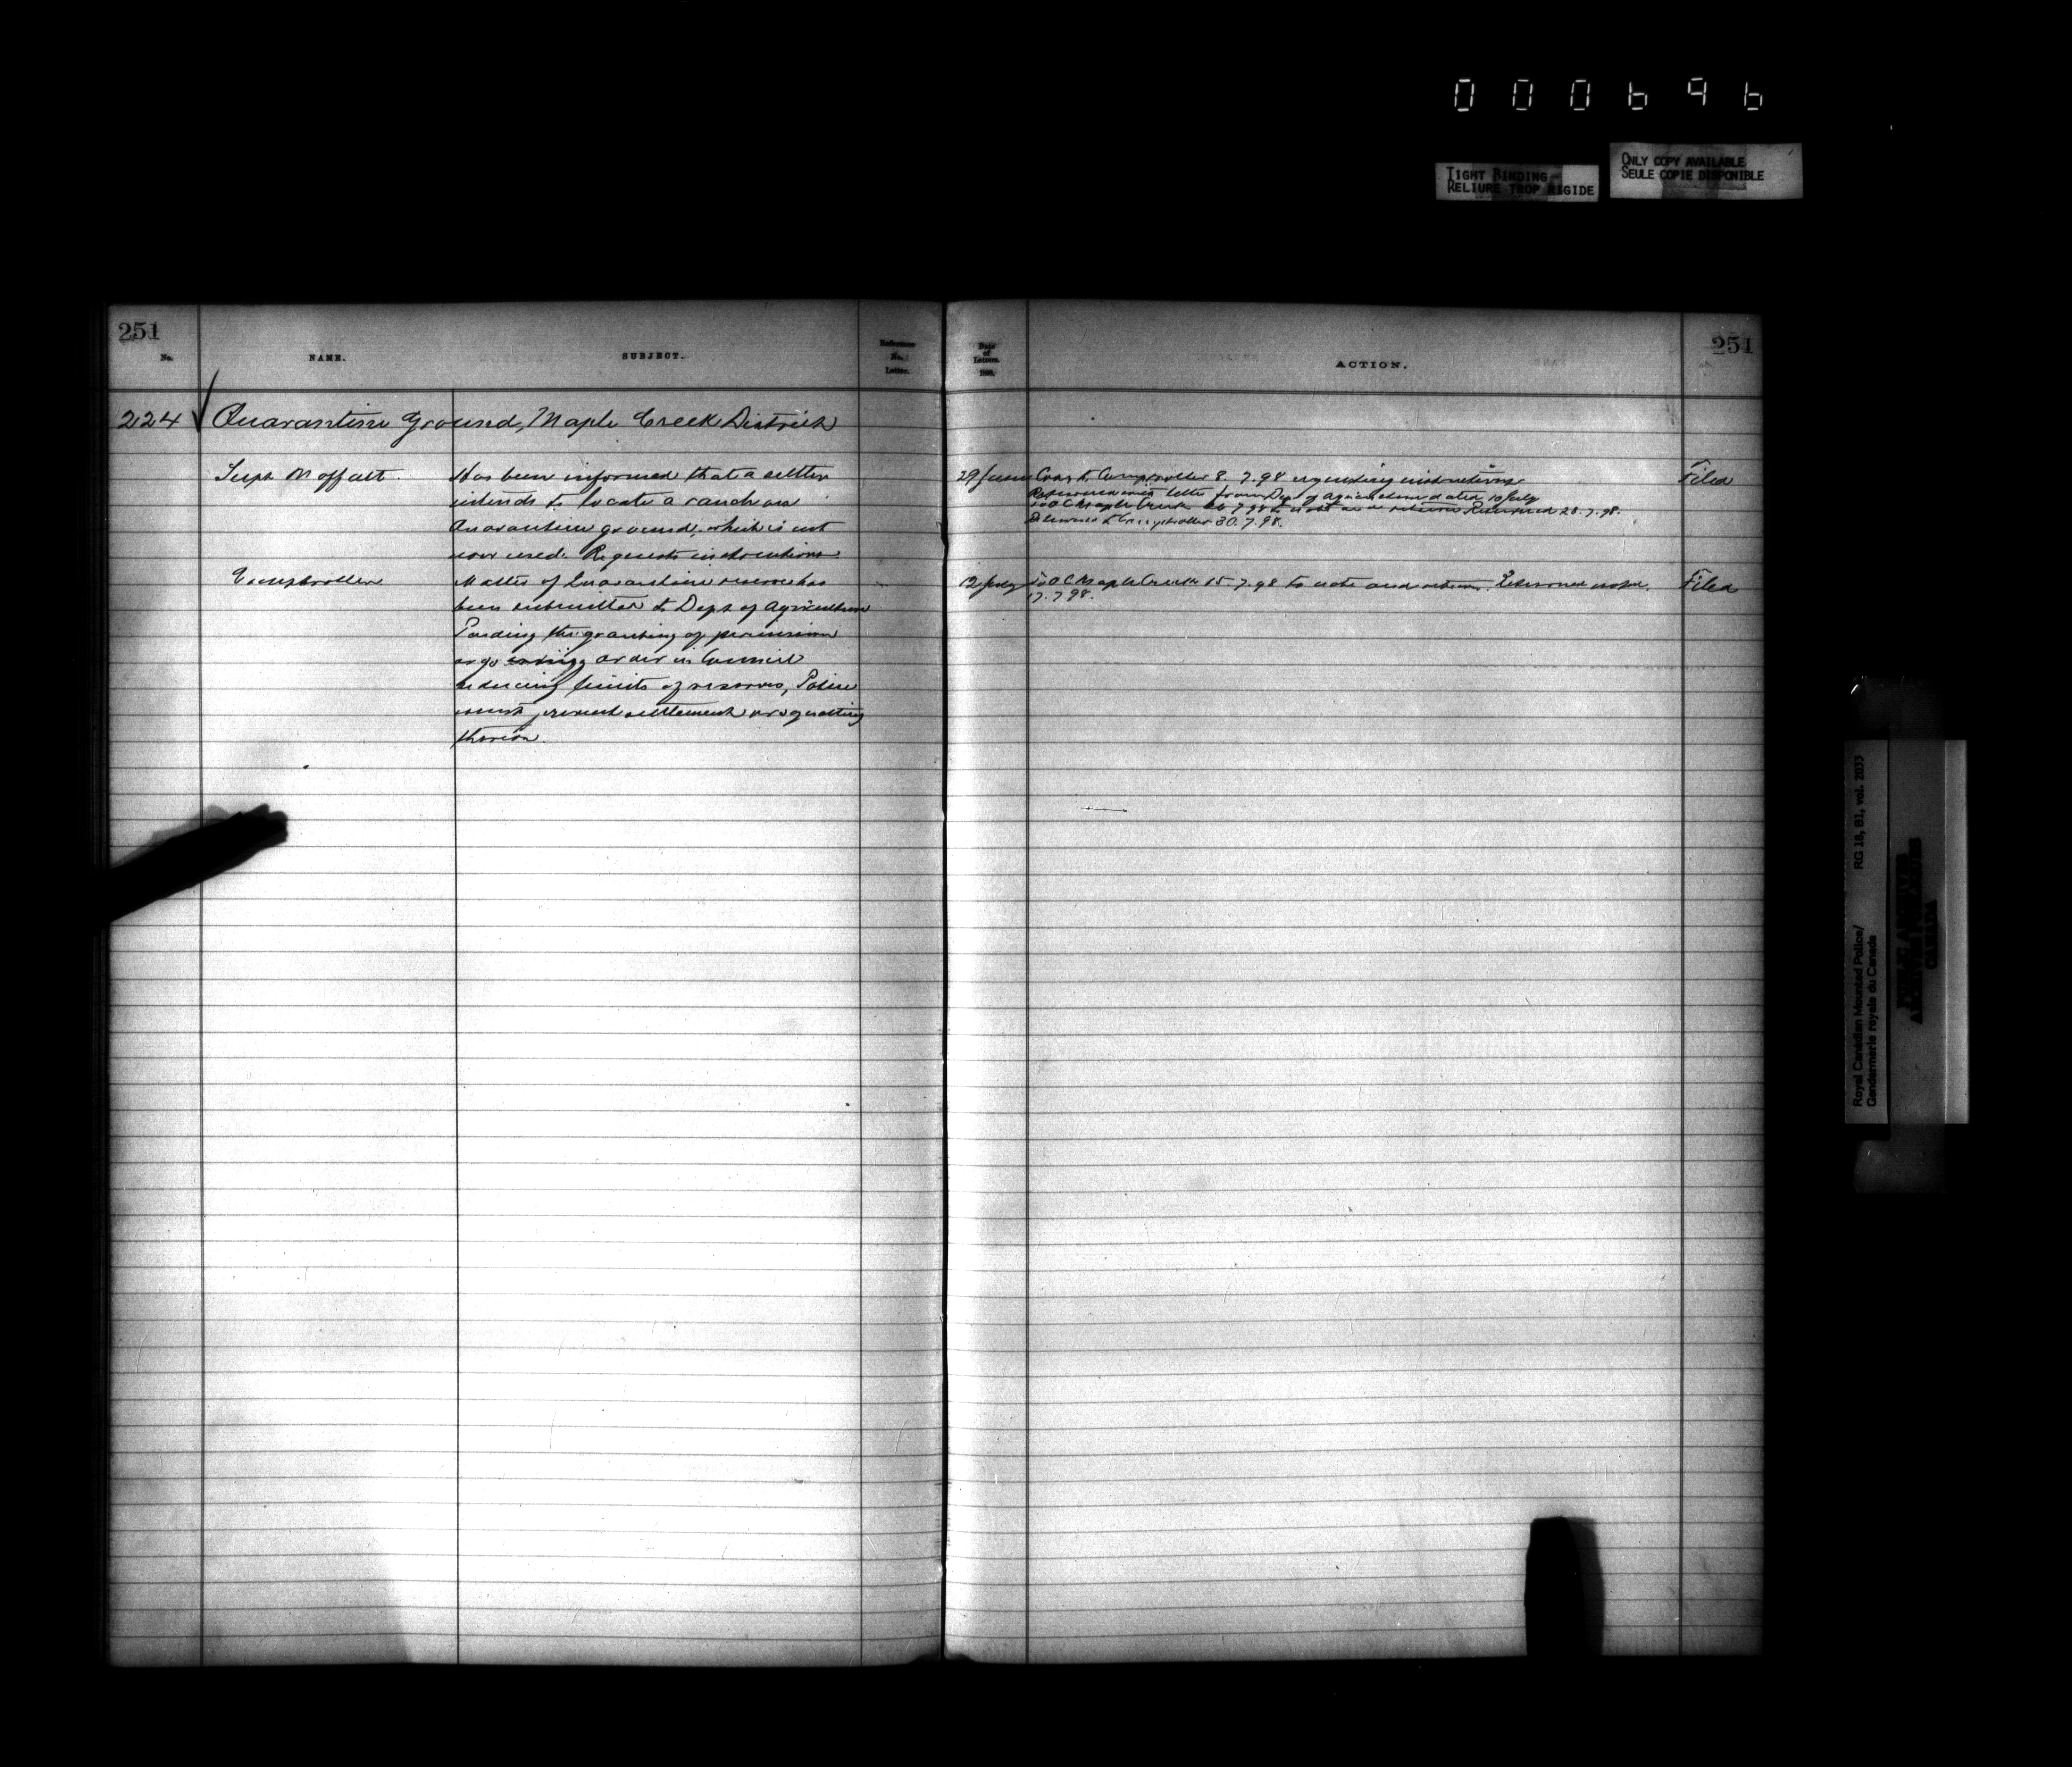 000696
TIGHT BINDING
RELIURE TROP RIGIDE
ONLY COPY AVAILABLE
SEULE COPIE DISPONIBLE
251
No.
NAME.
SUBJECT.
Reference
No.
Letter.
Date
of
Letters.
189
ACTION.
251
224 Quarantine Ground, Maple Creek District
Supt Moffatt.
Has been informed that a settler
intends to locate a ranch on
Quarantine ground, which is not
now used. Requests instructions
29 June
Copy to Comptroller 8.7.98 requesting instructions
Returned with letter from Dep of Agriculture dated 10 July
To OC Maple Creek 26.7.98 to note and return Returned 28.7.98.
Returned to Comptroller 30.7.98.
Filed
Comptroller
Matter of Quarantine reserve has
been submitted to Dept of Agriculture
Pending the granting of permission
or order in Council
reducing limits of reserves, Police
must prevent settlement or squatting
thereon.
12 July
To OC Maple Creek 15.7.98 to note and return. Returned noted
17.7.98.
Filed
Royal Canadian Mounted Police/
Gendarmerie royale du Canada
RG 18, B1, vol. 2033
PUBLIC ARCHIVES
ARCHIVES PUBLIQUES
CANADA